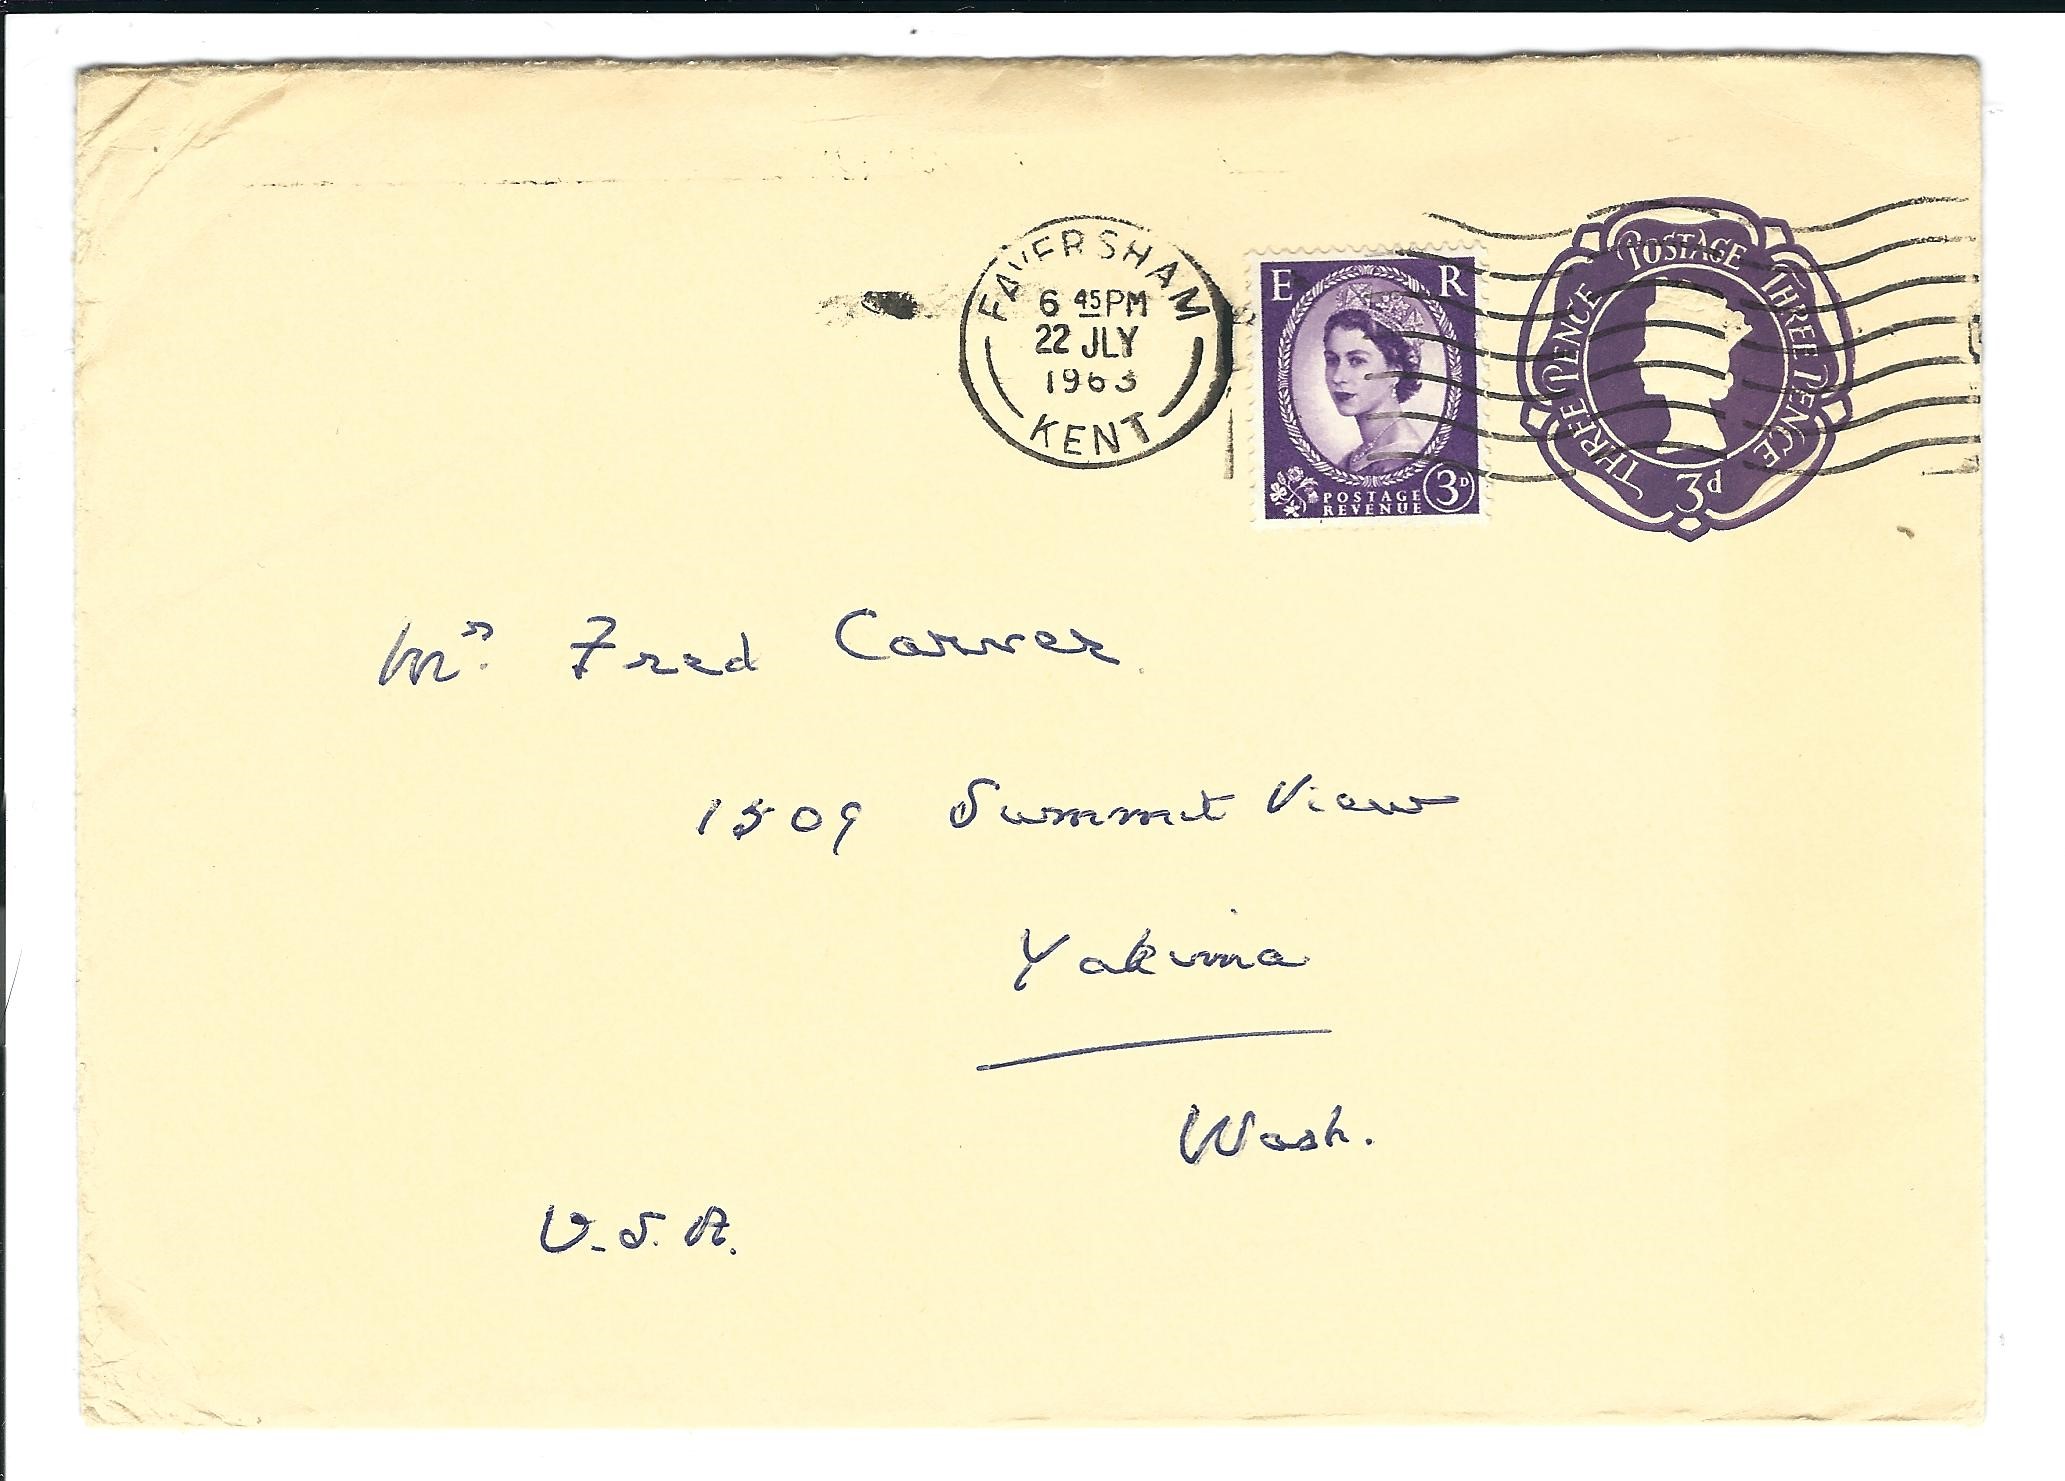 FAVERSHAM
6 45PM
22 JLY
1963
KENT
E R
POSTAGE
REVENUE
3D
POSTAGE
THREE PENCE
THREE PENCE
3d
Mrs. Fred Carver.
1509 Summit View
Yakima
Wash.
U.S.A.